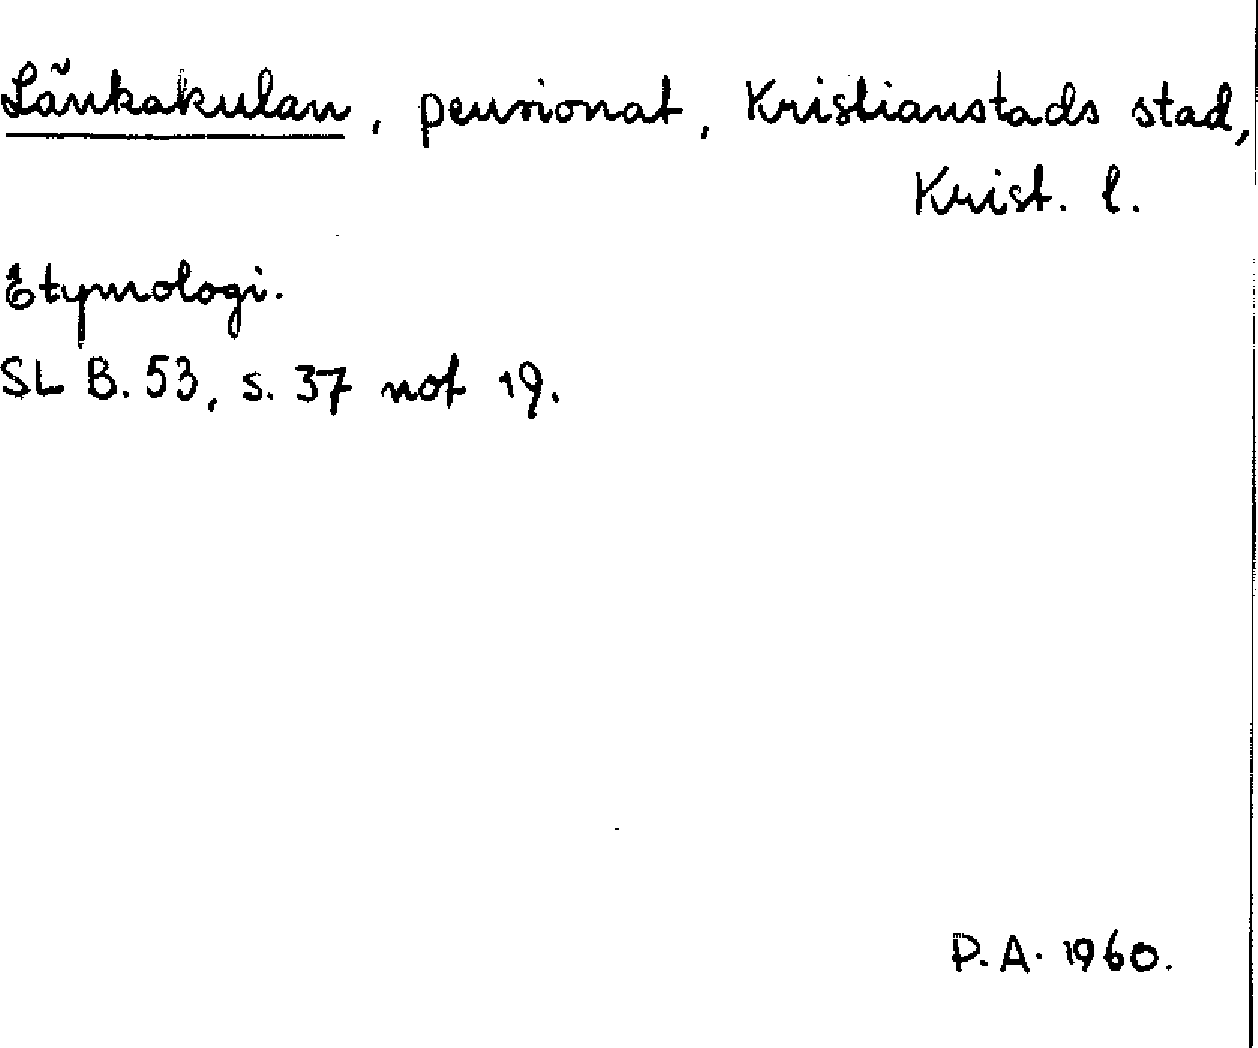 Länkakulan, pensionat, Kristianstads stad,
Krist. l.
Etymologi.
SL B. 53, s. 37 not 19.
P.A. 1960.